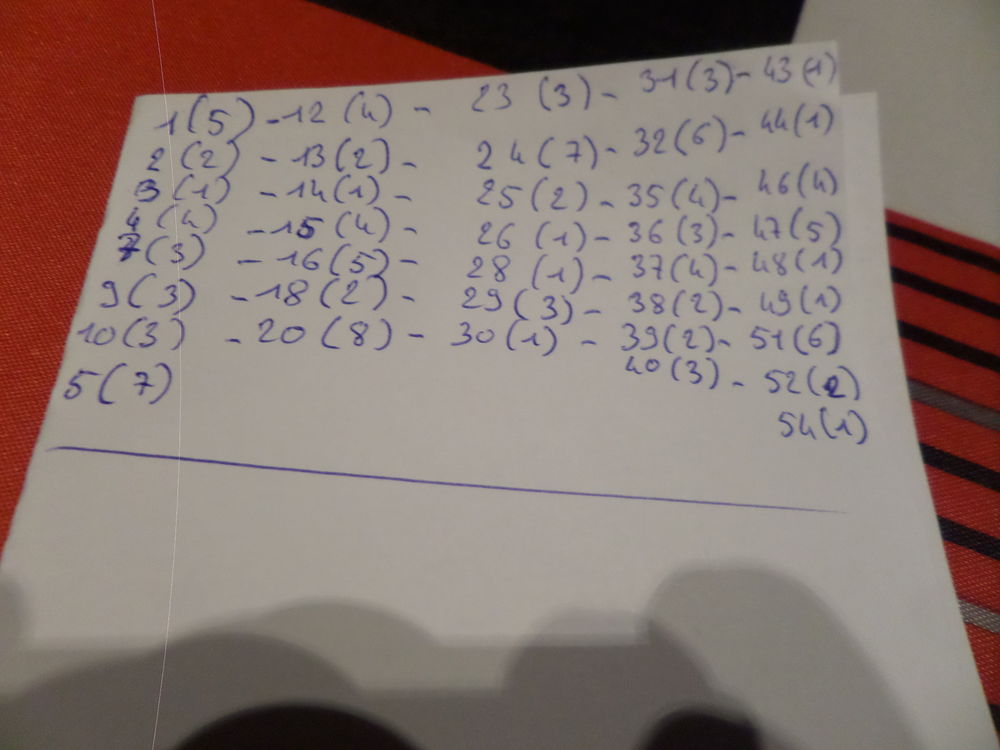 1(5) - 12(4) - 23(3) - 31(3) - 43(1)
2(2) - 13(2) - 24(7) - 32(6) - 44(1)
3(1) - 14(1) - 25(2) - 35(4) - 46(4)
4(4) - 15(4) - 26(1) - 36(3) - 47(5)
7(3) - 16(5) - 28(1) - 37(4) - 48(1)
9(3) - 18(2) - 29(3) - 38(2) - 49(1)
10(3) - 20(8) - 30(1) - 39(2) - 51(6)
5(7) 40(3) - 52(2)
54(1)